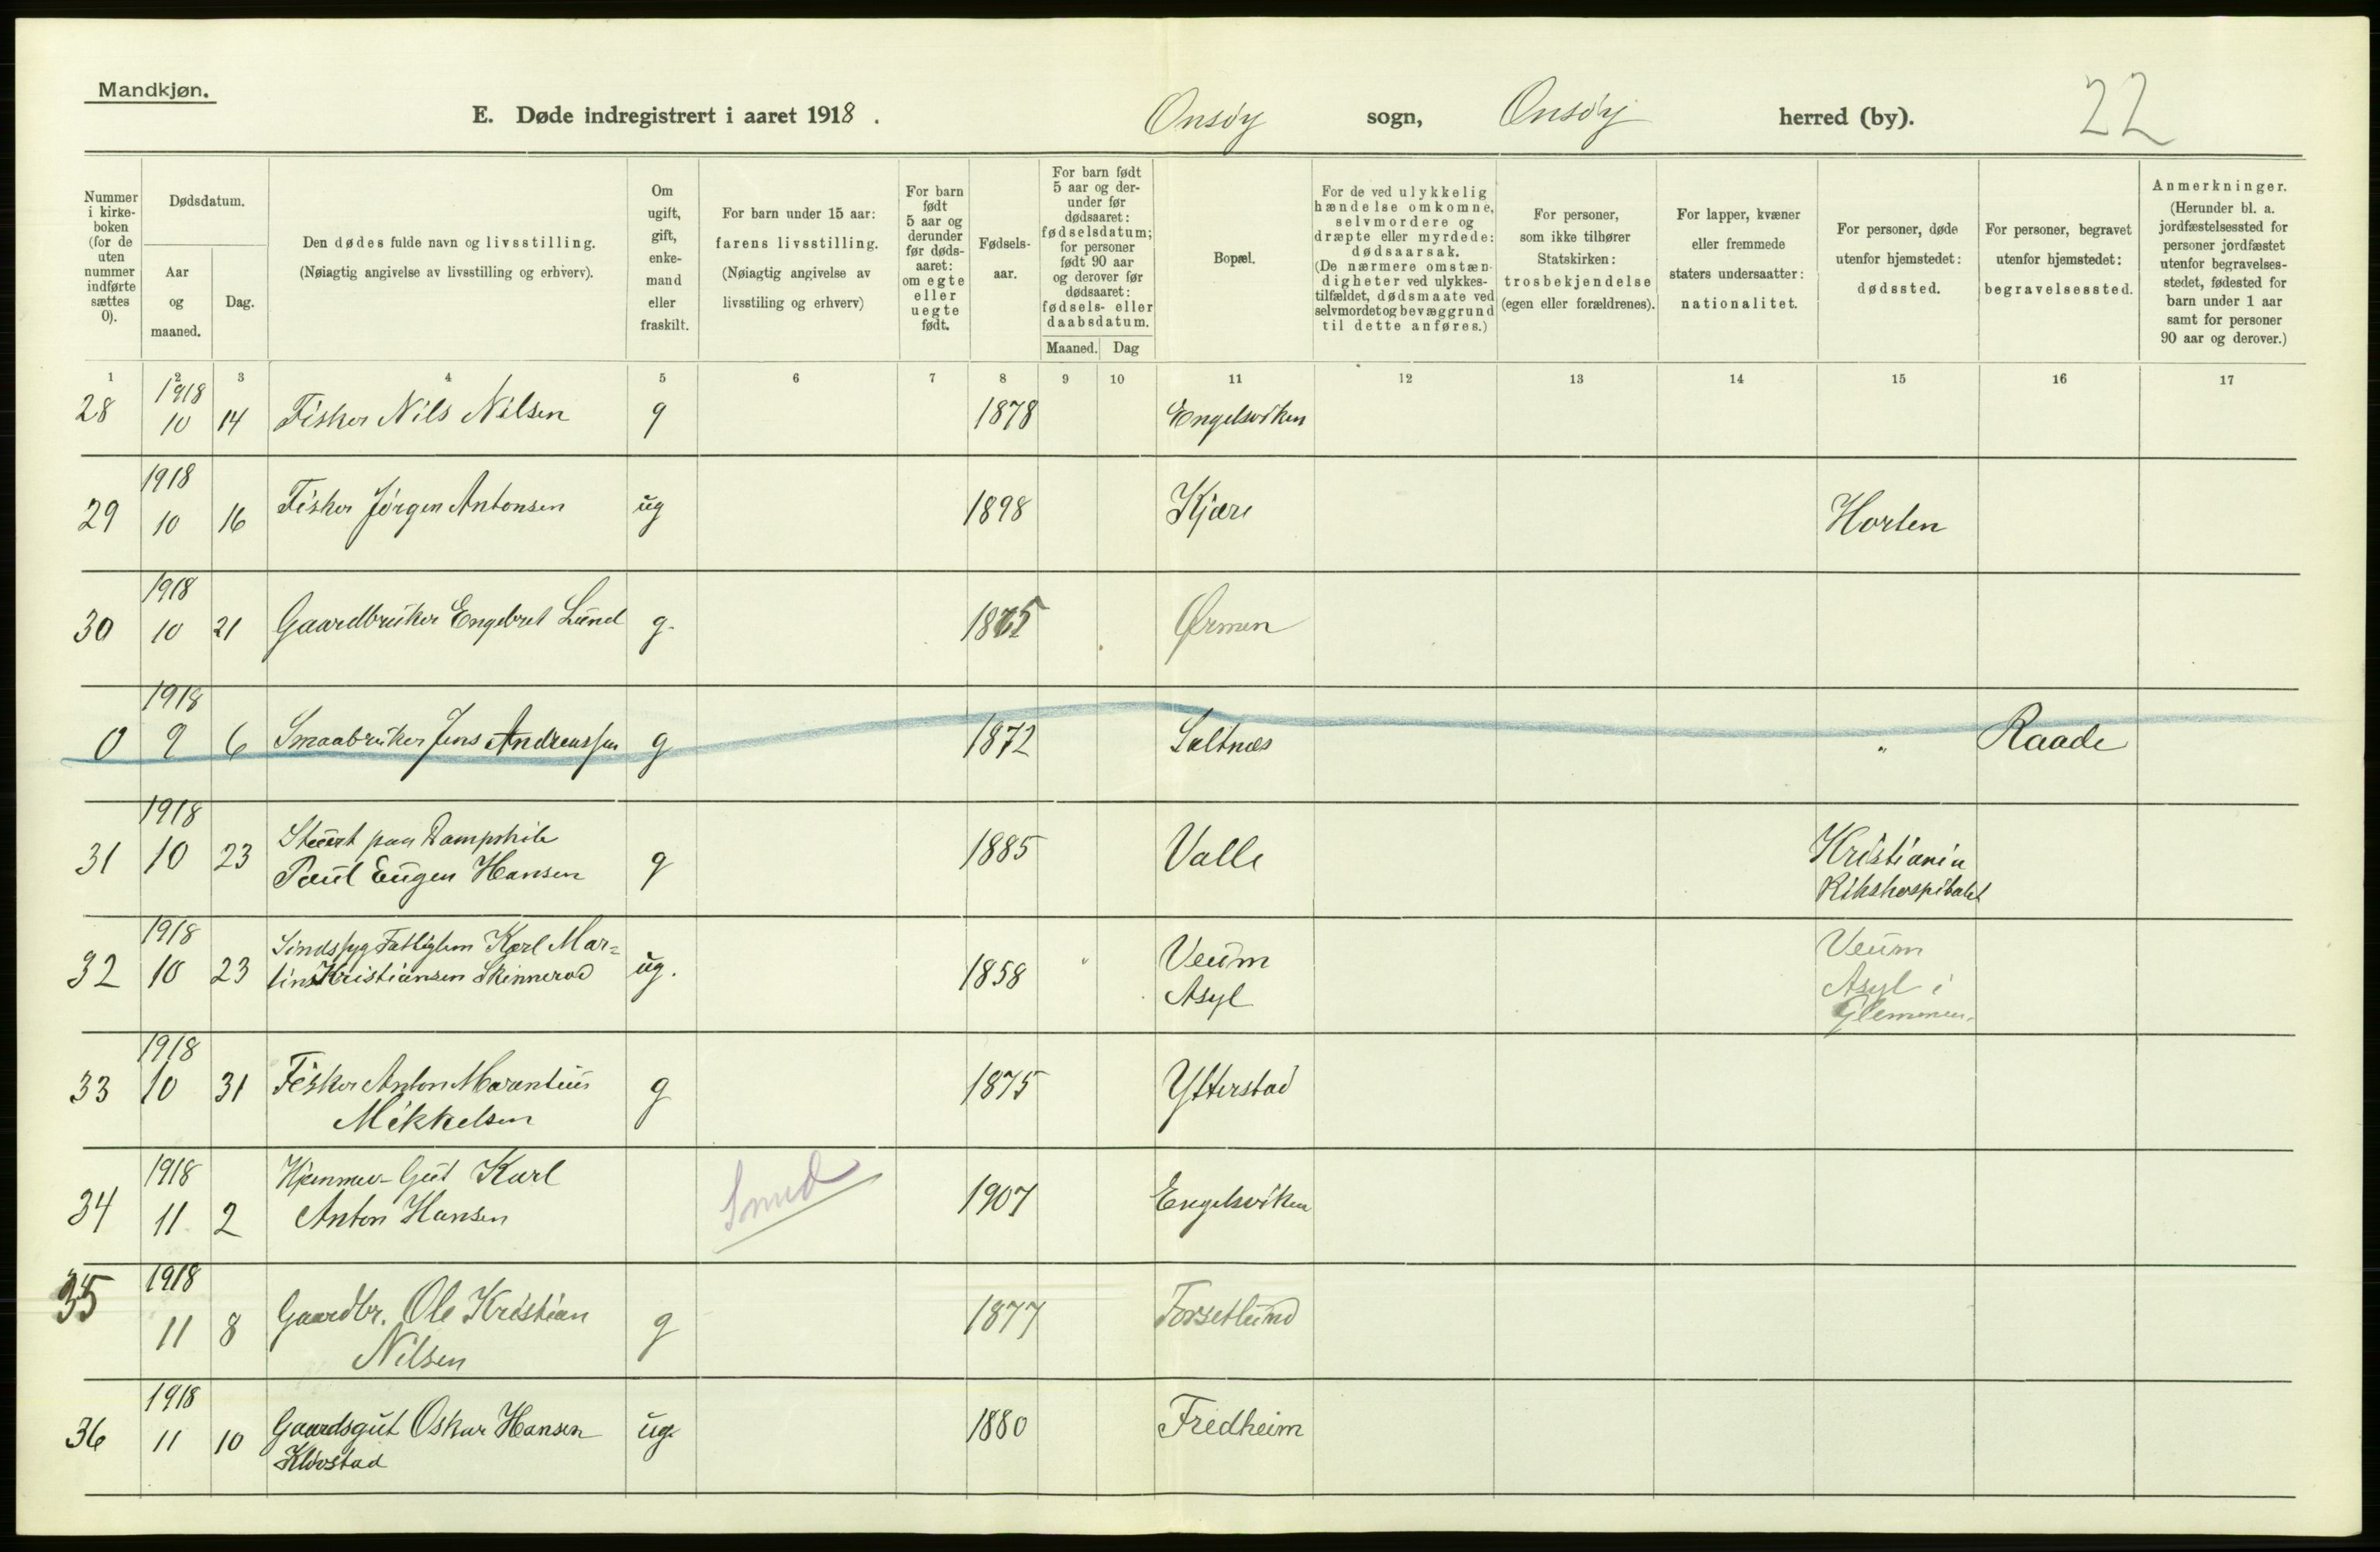 Mandkjøn.
E. Døde indregistrert i aaret 1918. Onsöy sogn, Onsöy herred (by). 22
Nummer i kirke-boken (for de uten nummer indførte sættes 0).
Dødsdatum.
Aar og maaned.
Dag.
Den dødes fulde navn og livsstilling.
(Nøiagtig angivelse av livsstilling og erhverv).
Om ugift, gift, enke-mand eller fraskilt.
For barn under 15 aar:
farens livsstilling.
(Nøiagtig angivelse av
livsstiling og erhverv)
For barn født 5 aar og derunder før døds-aaret: om egte eller uegte født.
Fødsels-aar.
For barn født 5 aar og der-under før dødsaaret: fødselsdatum; for personer født 90 aar og derover før dødsaaret: fødsels- eller daabsdatum.
Maaned. Dag
Bopæl.
For de ved ulykkelig hændelse omkomne, selvmordere og dræpte eller myrdede: dødsaarsak. (De nærmere omstæn-digheter ved ulykkes-tilfældet, dødsmaate ved selvmordet og bevæggrund til dette anføres.)
For personer, som ikke tilhører Statskirken: trosbekjendelse (egen eller forældrenes).
For lapper, kvæner eller fremmede staters undersaatter: nationalitet.
For personer, døde utenfor hjemstedet: dødssted.
For personer, begravet utenfor hjemstedet: begravelsessted.
Anmerkninger.
(Herunder bl. a. jordfæstelsessted for personer jordfæstet utenfor begravelses-stedet, fødested for barn under 1 aar samt for personer 90 aar og derover.)
1 2 3 4 5 6 7 8 9 10 11 12 13 14 15 16 17
1918
28 10 14 Fisker Nils Nilsen g 1878 Engelsviken
1918
29 10 16 Fisker Jörgen Antonsen ug 1898 Kjære Horten
1918
30 10 21 Gaardbruker Engebret Lund g. 1875 Ørmen
1918
0 9 6 Smaabruker Jens Andreassen g 1872 Saltnæs " Raade
1918
31 10 23 Stuert paa Dampskib
Paul Eugen Hansen g 1885 Valle Kristiania
Rikshospitalet
1918
32 10 23 Sindssyg Fattiglem Karl Mar=
tins Kristiansen Skinnerød ug. 1858 Veum
Asyl Veum
Asyl i
Glemmen.
1918
33 10 31 Fisker Anton Marentius
Mikkelsen g 1875 Ytterstad
1918
34 11 2 Hjemmev. Gut Karl
Anton Hansen Smed 1907 Engelsviken
1918
35 11 8 Gaardbr. Ole Kristian
Nilsen g 1877 Forsetlund
1918
36 11 10 Gaardsgut Oskar Hansen
Klövstad ug. 1880 Fredheim